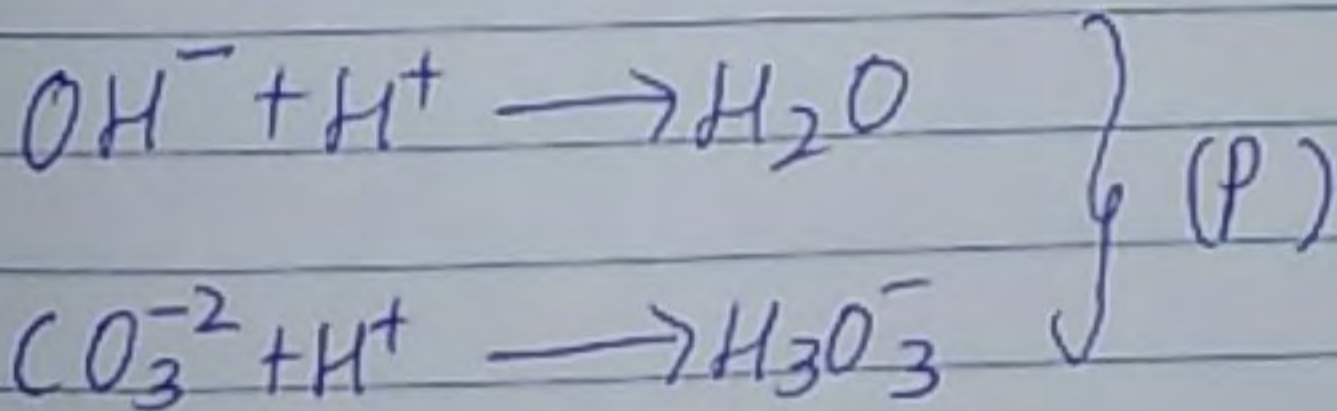 OH⁻ + H⁺ → H₂O
(P)
CO₃⁻² + H⁺ → H₃O₃⁻